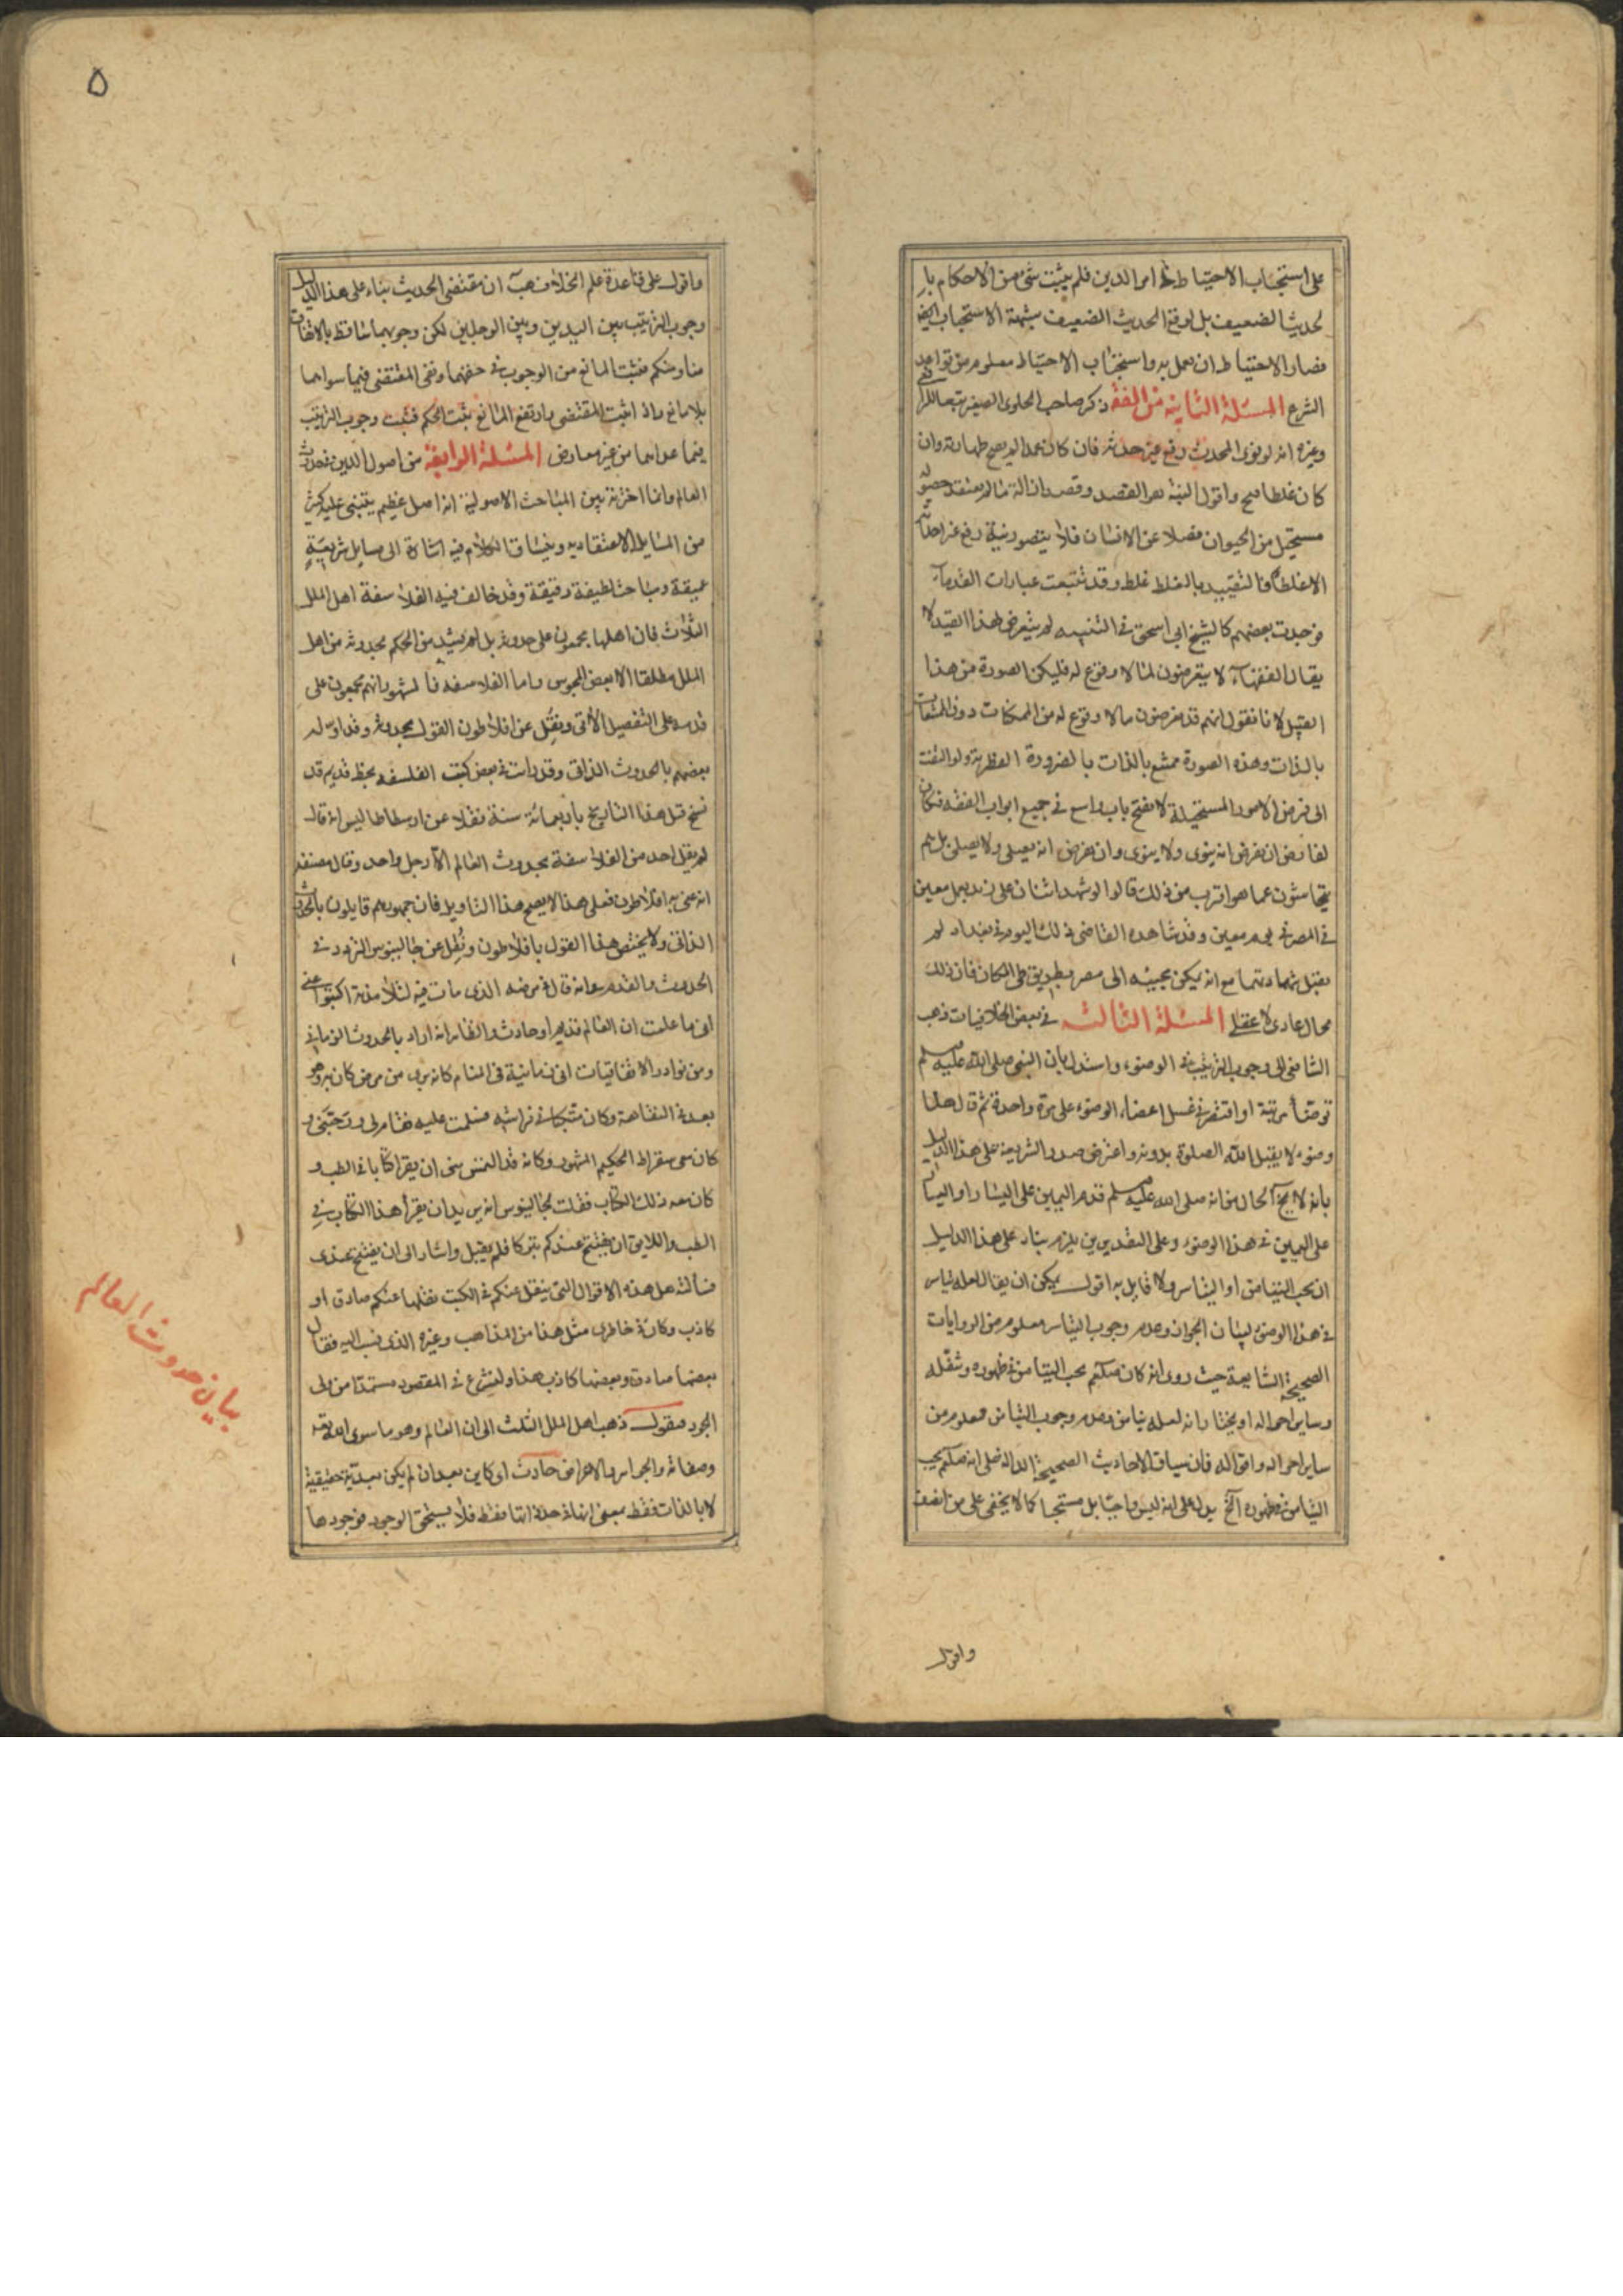 على استحباب الاحتياط في امر الدين فلم يثبت شئ من الاحكام بل
لحديث الضعيف بل اوقع الحديث الضعيف شبهة الاستحباب
فصار الاحتياط ان يعمل به واستحباب الاحتياط معلوم من قواعد
الشرع المسئلة الثانية من الفقه ذكر صاحب الحاوى الصغير تبعا للرافعى
وغيره انه لو نوى المحدث رفع غير حدثه فان كان عمدا لم يصح طهارته وان
كان غلطا صح واقول النية هو القصد وقصد ازالة ما لم يعتقد حصوله
مستحيل من الحيوان فضلا عن الانسان فلا يتصور نية رفع غير احداثه
الا غلطا فالتقييد بالغلط غلط وقد تتبعت عبارات القدماء
فوجدت بعضهم كالشيخ ابى اسحق فى التنبيه لم يتعرض لهذا القيد لا
يقال الفقهاء لا يتعرضون لما لا وقوع له فليكن الصورة من هذا
القبيل لانا نقول انهم قد يفرضون ما لا وقوع له من الممكنات دون الممتنعات
بالذات وهذه الصورة ممتنع بالذات بالضرورة الفطرية ولو التفت
الى فرض الامور المستحيلة لانفتح باب واسع فى جميع ابواب الفقه فكان
لفارض ان يفرض انه ينوى ولا ينوى وان يفرض انه يصلى ولا يصلى بل هم
يتحاشون عما هو اقرب من ذلك قالوا لو شهد اثنان على زيد بعمل معين
فى المصر فى يوم معين وقد شاهده القاضى ذلك اليوم فى بغداد لم
يقبل شهادتهما مع انه يمكن مجيئه الى مصر بطريق طى المكان فان ذلك
محال عادى لا عقلى المسئلة الثالثة فى بعض الخلافيات ذهب
الشافعى الى وجوب الترتيب فى الوضوء واستدل بان النبى صلى الله عليه وسلم
توضأ مرتبة او اقتصر فى غسل اعضاء الوضوء على مرة واحدة ثم قال هذا
وضوء لا يقبل الله الصلوة بدونه واعترض صدر الشريعة على هذا الدليل
بانه لا يخ الحال من انه صلى الله عليه وسلم قدم اليمين على اليسار او اليسار
على اليمين فى هذا الوضوء وعلى التقديرين يلزم بناء على هذا الدليل
ان يجب التيامن او التياسر ولا قايل به اقول يمكن ان يقال لعله تياسر
فى هذا الوضوء لبيان الجواز وعدم وجوب التياسر معلوم من الروايات
الصحيحة الشايعة حيث روى انه كان صلعم يحب التيامن فى طهوره وتنقله
وساير احواله او يختار انه لعله تيامن وعدم وجوب التيامن معلوم من
ساير احواله واقواله فان سياق الاحاديث الصحيحة الدالة على انه صلعم يحب
التيامن فى طهوره الخ يدل على انه ليس واجبا بل مستحبا كما لا يخفى على من انصف
واقول
۵
واقول على قاعدة علم الخلاف هب ان مقتضى الحديث بناء على هذا الدليل
وجوب الترتيب بين اليدين وبين الرجلين لكن وجوبهما ساقط بالاتفاق
منا ومنكم فثبت المانع من الوجوب فى حقهما وبقى المقتضى فيما سواهما
بلا مانع واذا ثبت المقتضى وارتفع المانع ثبت الحكم فثبت وجوب الترتيب
فيما عداهما من غير معارض المسئلة الرابعة من اصول الدين فى حدوث
العالم وانما اخترته بين المباحث الاصولية انه اصل عظيم يبتنى عليه كثير
من المسايل الاعتقاديه وينساق الكلام فيه اشارة الى مسايل شريفة
عميقة ومباحث لطيفة دقيقة وقد خالف فيه الفلاسفة اهل الملل
الثلاث فان اهلها مجمعون على حدوثه بل لم يشذ من الحكم بحدوثه من اهل
الملل مطلقا الا بعض المجوس واما الفلاسفة فالمشهور انهم مجمعون على
قدمه على التفصيل الآتى ونقل عن افلاطون القول بحدوثه وقد اوّله
بعضهم بالحدوث الذاتى وقد رايت فى بعض كتب الفلسفه بخط قديم قد
نسخ قبل هذا التاريخ باربعمائة سنة نقلا عن ارسطاطاليس انه قال
لم يقل احد من الفلاسفة بحدوث العالم الا رجل واحد وقال مصنفه
انه عنى به افلاطون فعلى هذا لا يصح هذا التاويل فان جمهورهم قايلون بالحدوث
الذاتى ولا يختص هذا القول بافلاطون ونقل عن جالينوس التردد فى
الحدوث والقدم وانه قال فى مرضه الذى مات فيه لتلامذته اكتبوا عنى
انى ما علمت ان العالم قديم او حادث والظاهر انه اراد بالحدوث الزمانى
ومن نوادر الاتفاقيات انى فى المنام كانه برئ من مرض كان به وهو
بعد فى النقاهة وكان متكئا فى فراشه فسلمت عليه فقام لى ورحّبنى و
كان معى سقراط الحكيم المشهور وكانه قد التمس منى ان يقرأ كتابا فى الطب و
كان معه ذلك الكتاب فقلت لجالينوس انه يريد ان يقرأ هذا الكتاب فى
الطب واللايق ان يفتتح عندكم تبركا فلم يقبل واشار الى ان يفتتح عندى
فسألته هل هذه الاقوال التى ينقل عنكم فى الكتب نقلها عنكم صادق او
كاذب وكان فى خاطرى مثل هذا من المذاهب وغيره الذى نسب اليه فقال
بعضها صادق وبعضها كاذب هذا ولنشرع فى المقصود مستمدا من ولى
الجود فنقول ذهب اهل الملل الثلث الى ان العالم وهو ما سوى الله تعه
وصفاته والجواهر والاعراض حادث اى كاين بعد ان لم يكن بعدية حقيقية
لا بالذات فقط بمعنى انها فى حد ذاتها فقط فلا يستحق الوجود فوجودها
بيان حدوث العالم